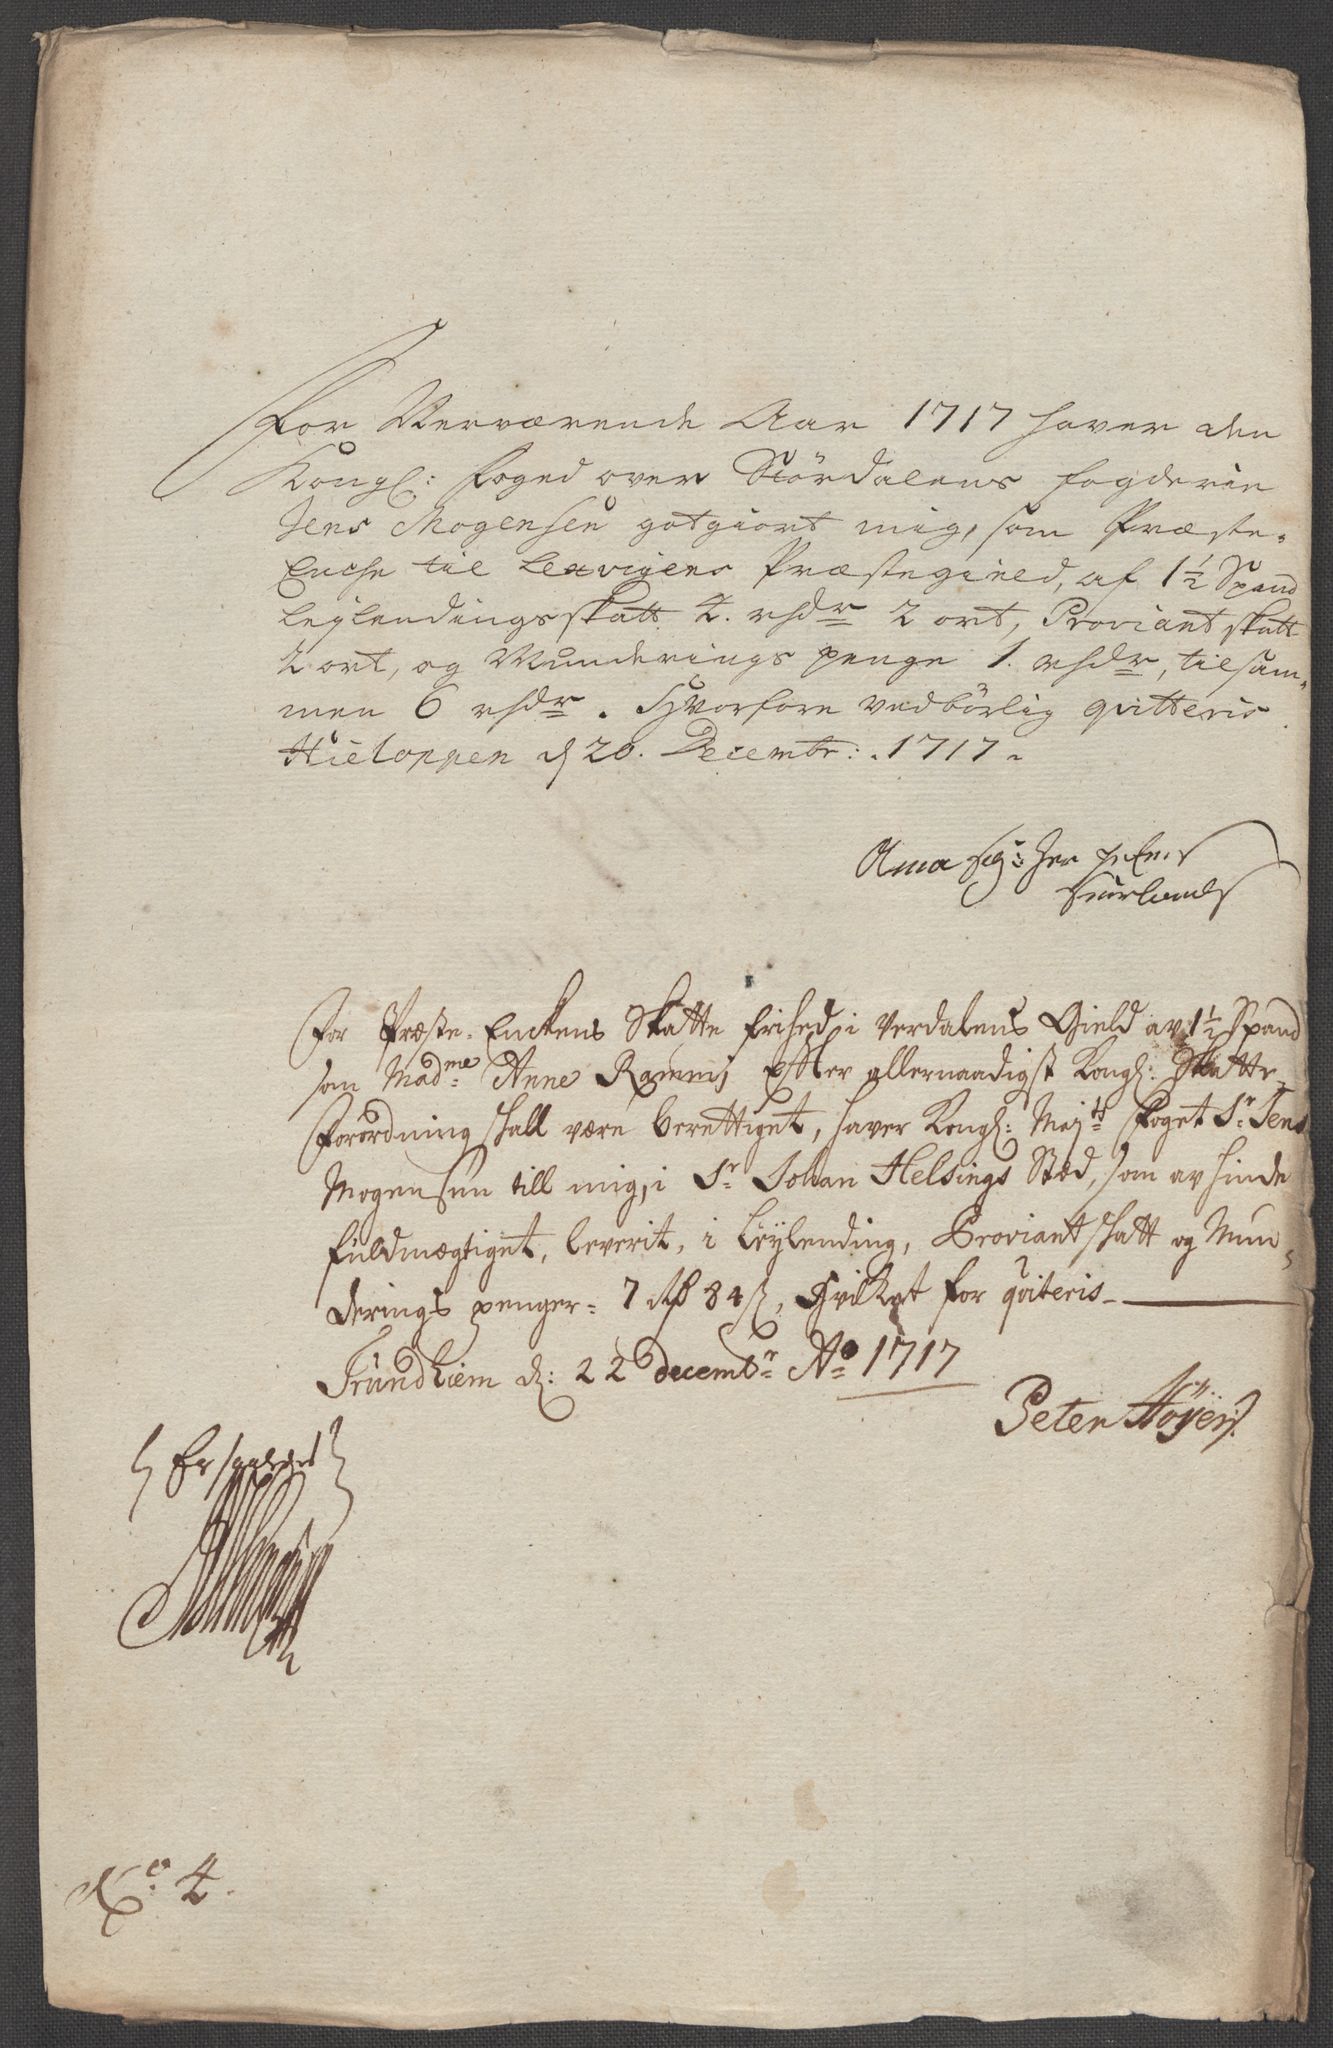 For Nerværende Aar 1717 haver den
Kongl: foged over Stördalens fogderie
Jens Mogensen gotgiort mig, som Præste-
Enche til Lexvigens Præstegield, af 1½ Spand
leylendings skatt 4. rhdr 2 ort, Proviant skatt
2 ort, og Munderings penge 1. rhdr, tilsam-
men 6 rhdr. Hvorfore vedbörlig qvitteris
Hieloppen d 20. Decembr: 1717.
Anna Sl: Her
For Præste-Enckens Skatte frihed i Verdalens Gield av 1½ Spand
som Madme Anne Ramms efter allernaadigst Kongl: Skatte-
Forordning skall være berettiget, haver Kongl: Majts Foget Sr Jens
Mogensen till mig, i Sr Johan Helsings Sted, som av hinde
fuldmægtiget, leverit, i Leylending, Proviant skatt og Mun-
derings penger= 7 rd 84 s, Hvilket for qviteris
Trundhiem d: 22 decembr Ao 1717
Peter Höyer
No 4.